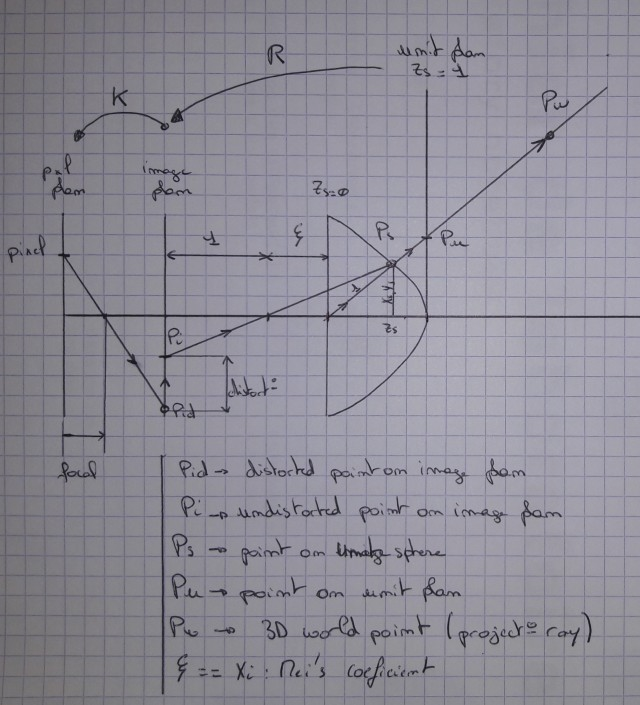 R
K
unit plan
Zs = 1
Pw
pixel plan
image plan
Zs=0
1
ξ
Ps
Pu
pixel
1
Zs
Pi
distort°
Pid
focal
Pid → distorted point on image plan
Pi → undistorted point on image plan
Ps → point on sphere
Pu → point on unit plan
Pw → 3D world point (project° ray)
ξ == Xi : Mei's coeficient